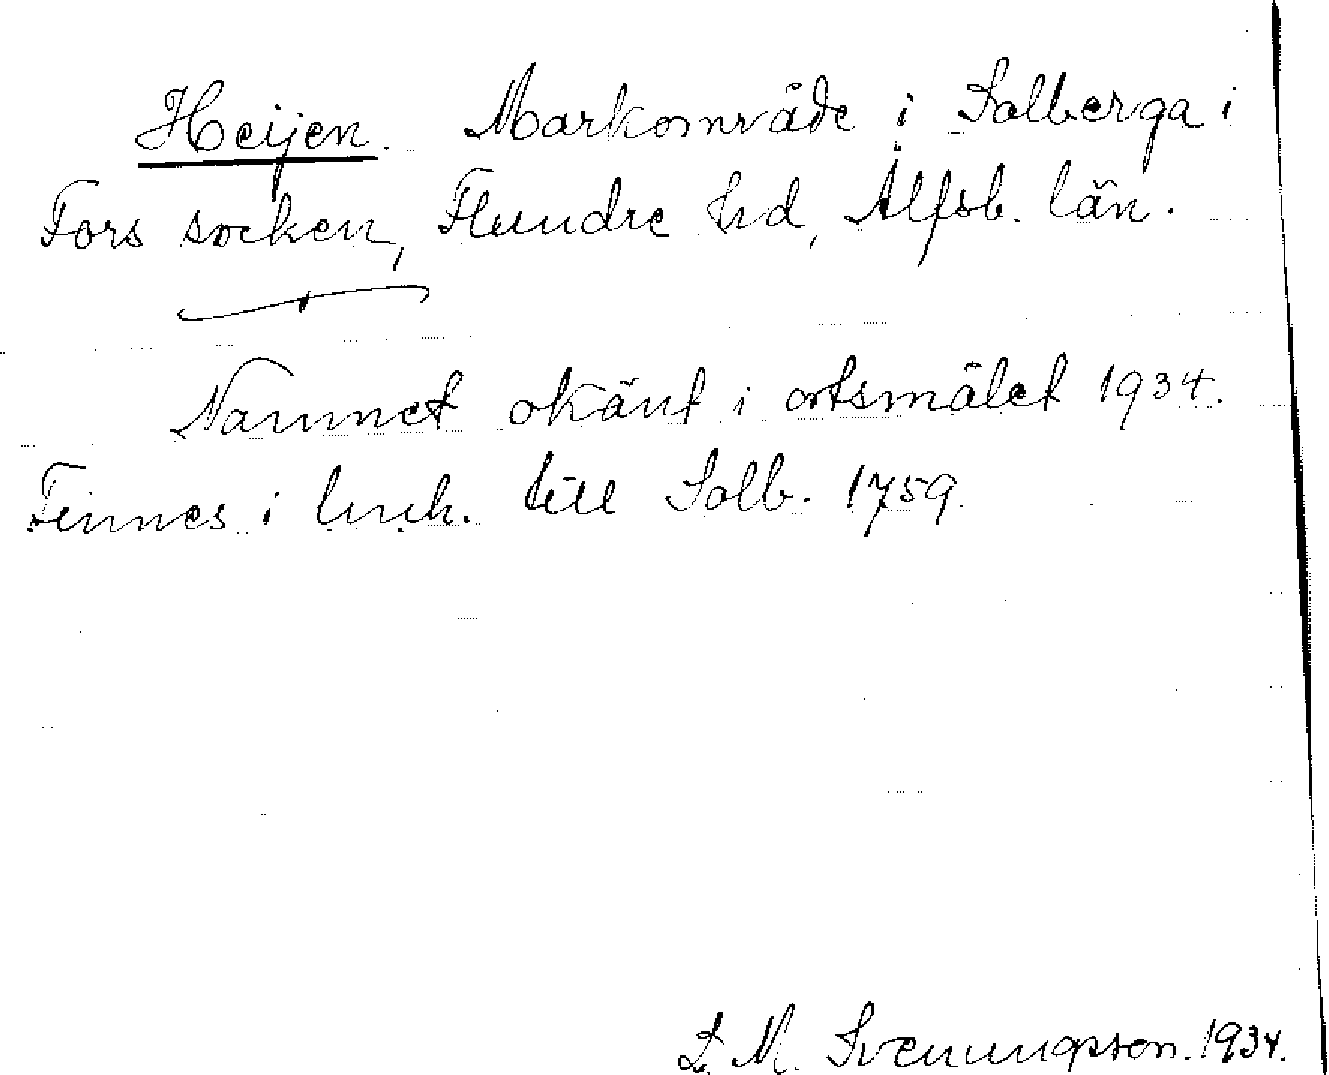 Heijen. Markområde i Solberga i
Fors socken, Flundre hd, Älfsb. län.
Namnet okänt i ortsmålet 1934.
Finnes i till Solb. 1759.
D. M. Svenungsson. 1934.